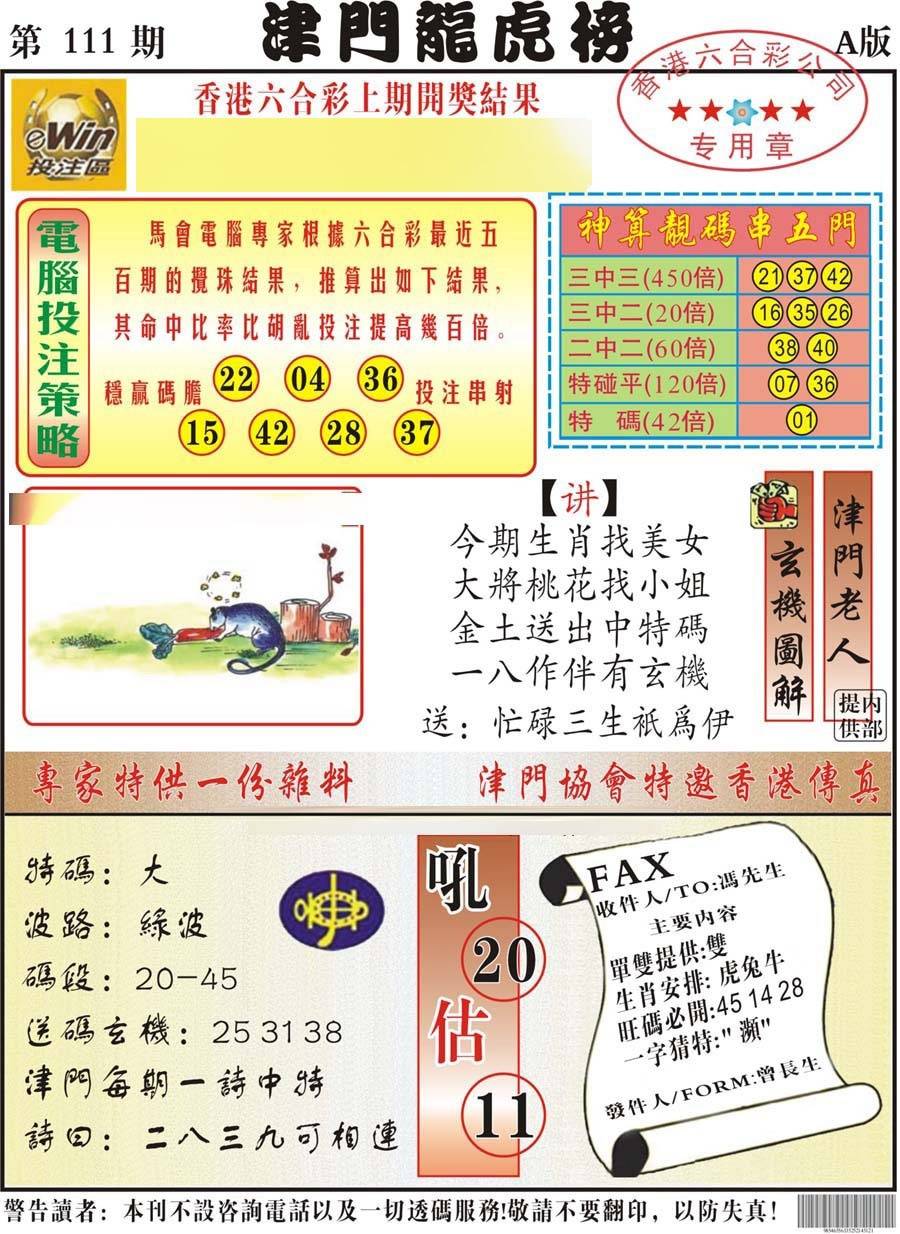 第 111 期
津門龍虎榜
A版
香港六合彩公司
专用章
eWin
投注區
香港六合彩上期開獎結果
電腦投注策略
馬會電腦專家根據六合彩最近五
百期的攪珠結果，推算出如下結果，
其命中比率比胡亂投注提高幾百倍。
穩贏碼膽 22 04 36 投注串射
15 42 28 37
神算靚碼串五門
三中三(450倍) 21 37 42
三中二(20倍) 16 35 26
二中二(60倍) 38 40
特碰平(120倍) 07 36
特 碼(42倍) 01
【讲】
今期生肖找美女
大將桃花找小姐
金土送出中特碼
一八作伴有玄機
送：忙碌三生衹爲伊
玄機圖解
津門老人
内部提供
專家特供一份雜料
津門協會特邀香港傳真
特碼：大
波路：綠波
碼段：20-45
送碼玄機：25 31 38
津門每期一詩中特
詩曰：二八三九可相連
吼
20
估
11
FAX
收件人/TO:馮先生
主要内容
單雙提供:雙
生肖安排: 虎兔牛
旺碼必開:45 14 28
一字猜特:"瀕"
發件人/FORM:曾長生
警告讀者：本刊不設咨詢電話以及一切透碼服務!敬請不要翻印，以防失真！